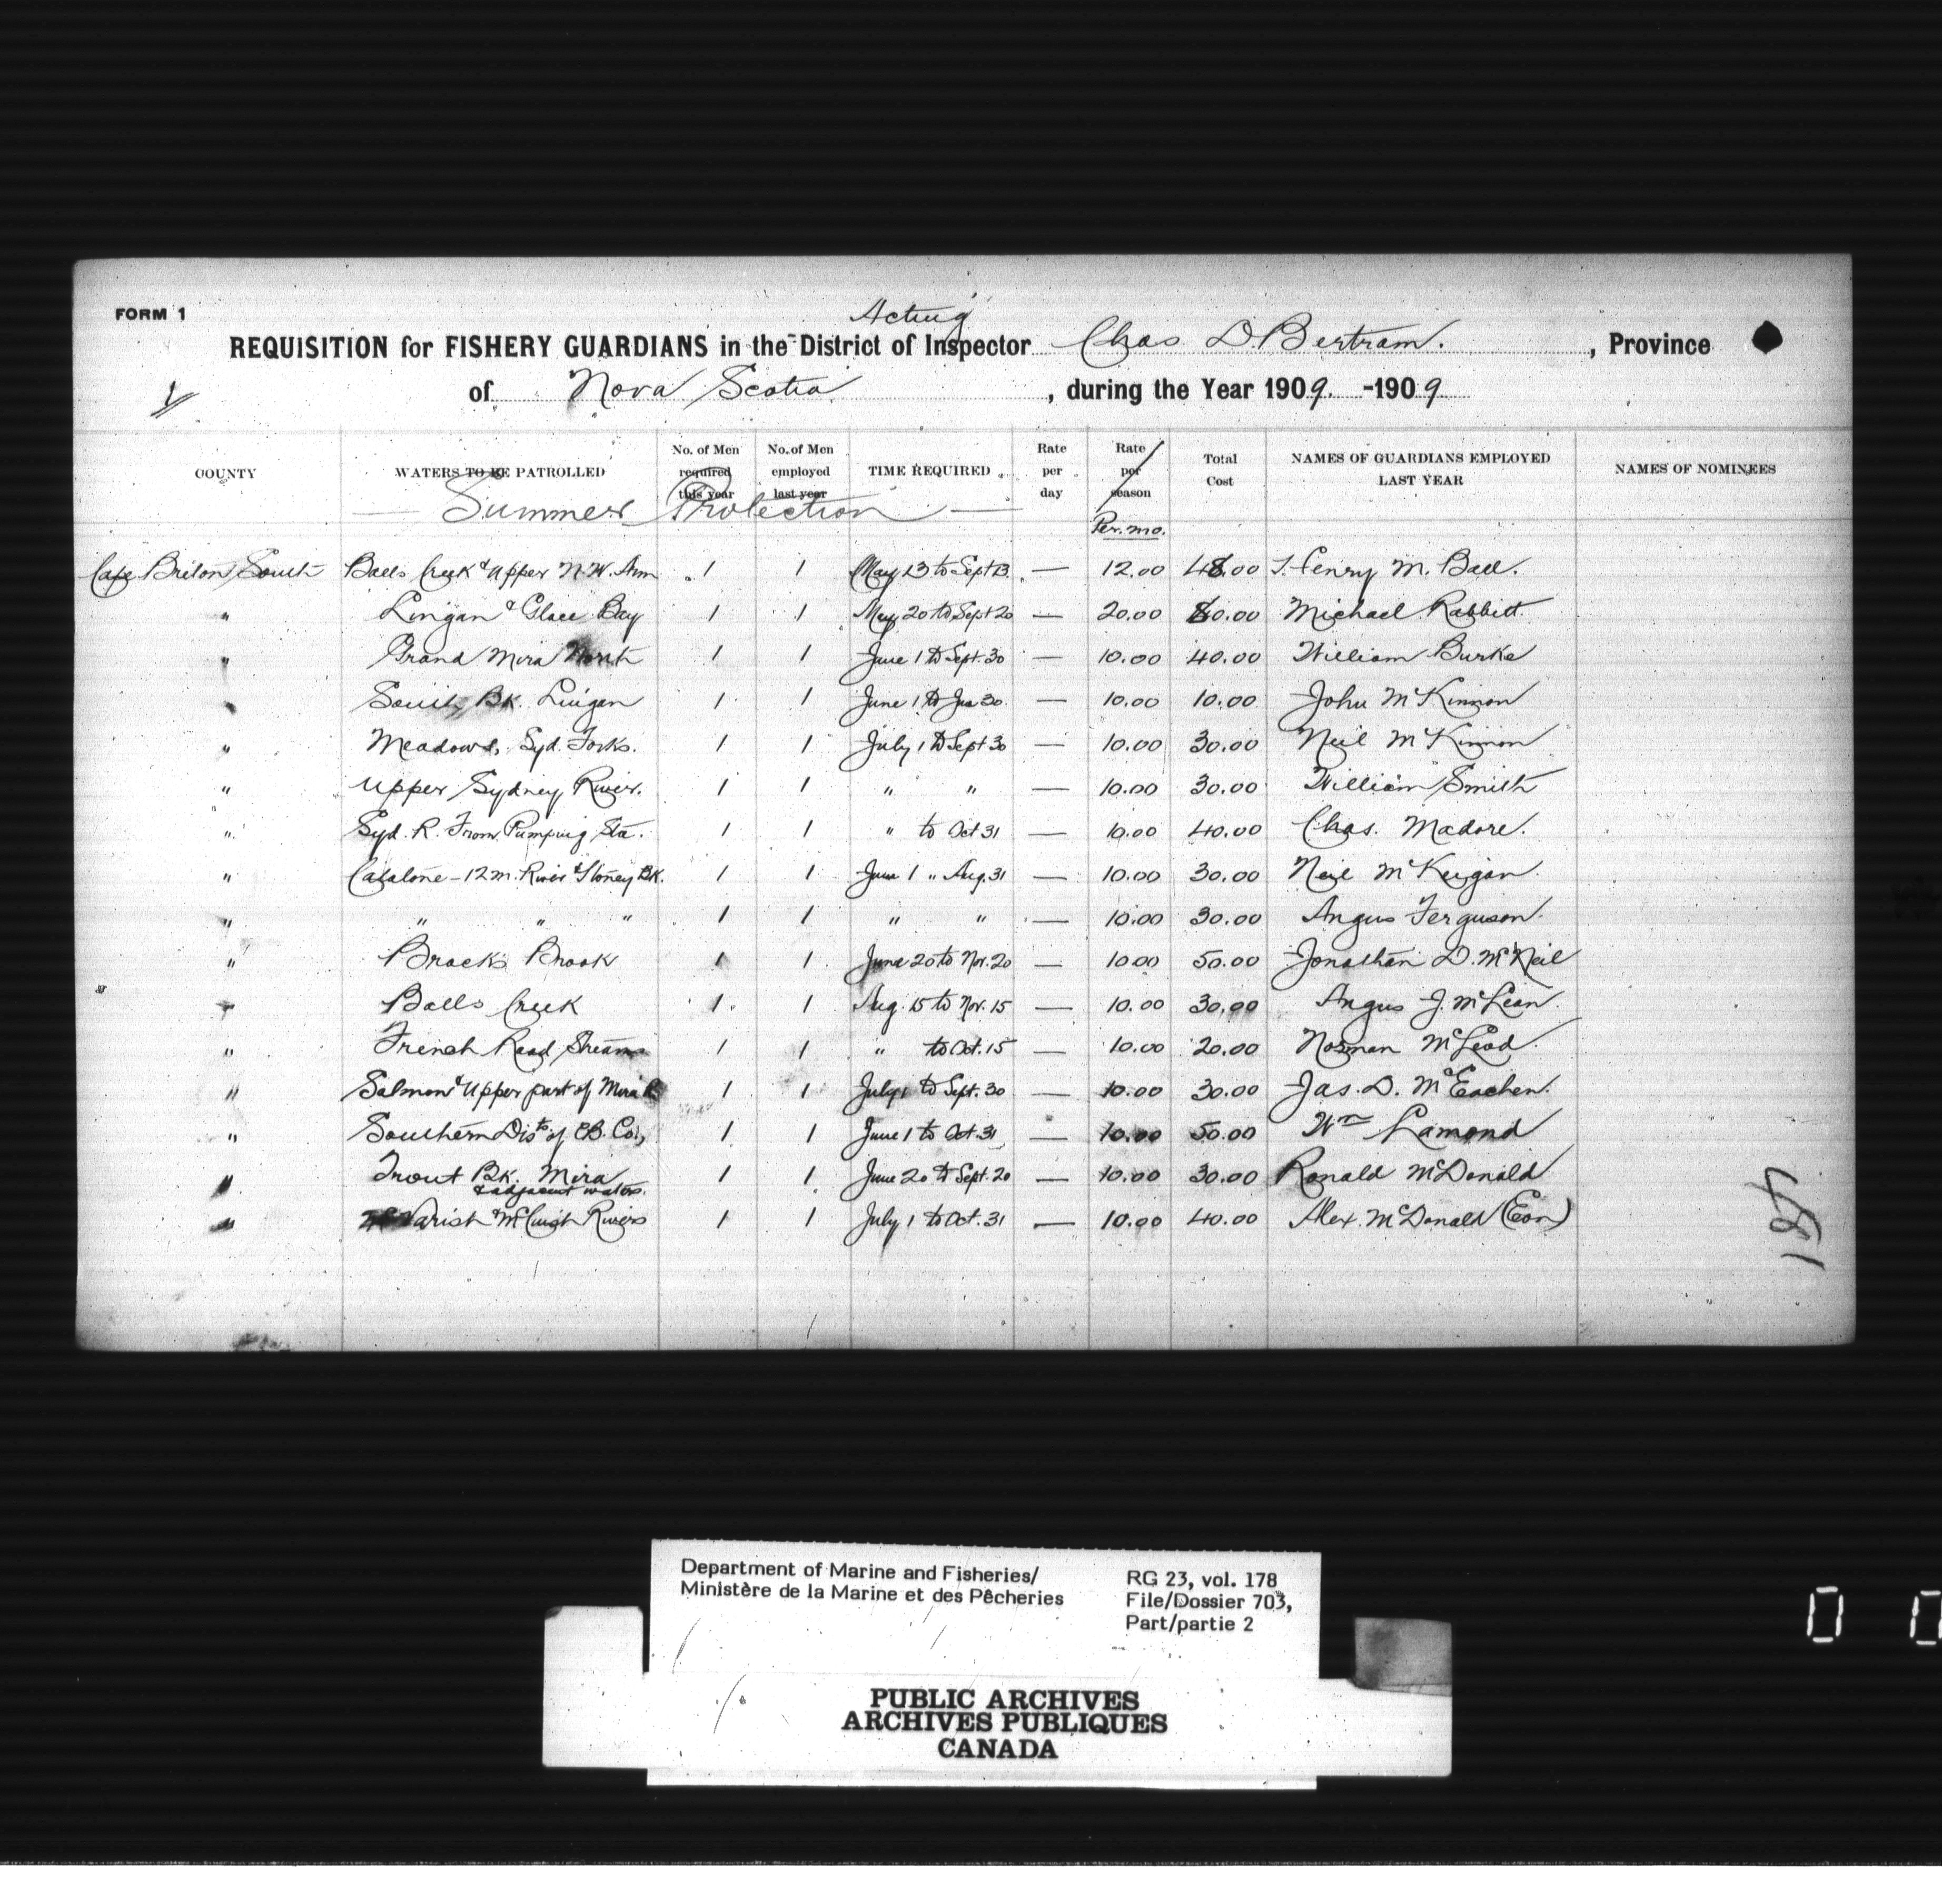 FORM 1
Acting
REQUISITION for FISHERY GUARDIANS in the District of Inspector Chas D. Bertram. , Province
of Nova Scotia , during the Year 1909. -1909
COUNTY WATERS TO BE PATROLLED No. of Men required this year No. of Men employed last year TIME REQUIRED Rate per day Rate per season Total Cost NAMES OF GUARDIANS EMPLOYED LAST YEAR NAMES OF NOMINEES
— Summer Protection —
Per. mo.
Cape Breton South Balls Creek & Upper N.W. Arm 1 1 May 13 to Sept 13. — 12.00 48.00 Henry M. Ball.
" Lingan & Glace Bay 1 1 May 20 to Sept 20 — 20.00 80.00 Michael Rabbitt.
" Grand Mira North 1 1 June 1 to Sept. 30 — 10.00 40.00 William Burke
" South Bk. Lingan 1 1 June 1 to Jun 30 — 10.00 10.00 John McKinnon
" Meadows, Syd. Forks. 1 1 July 1 to Sept 30 — 10.00 30.00 Neil McKinnon
" Upper Sydney River. 1 1 " " — 10.00 30.00 William Smith
" Syd. R. From Pumping Sta. 1 1 " to Oct 31 — 10.00 40.00 Chas. Madore.
" Catalone - 12 m. River & Stoney Bk. 1 1 June 1 " Aug. 31 — 10.00 30.00 Neil McKeigan
" " " " 1 1 " " — 10.00 30.00 Angus Ferguson.
" Brocks Brook 1 1 June 20 to Nov. 20 — 10.00 50.00 Jonathan D. McNeil
" Balls Creek 1 1 Aug. 15 to Nov. 15 — 10.00 30.00 Angus J. McLean
" French Road Streams 1 1 " to Oct. 15 — 10.00 20.00 Norman McLeod
" Salmon & Upper part of Mira R. 1 1 July 1 to Sept. 30 — 10.00 30.00 Jas. D. McEachen.
" Southern Dist. of C.B. Co., 1 1 June 1 to Oct. 31 — 10.00 50.00 Wm Lamond
" Trout Bk. Mira 1 1 June 20 to Sept. 20 — 10.00 30.00 Ronald McDonald
& adjacent waters.
" Rivers 1 1 July 1 to Oct. 31 — 10.00 40.00 Alex. McDonald (Eon)
Department of Marine and Fisheries/
Ministère de la Marine et des Pêcheries
RG 23, vol. 178
File/Dossier 703,
Part/partie 2
PUBLIC ARCHIVES
ARCHIVES PUBLIQUES
CANADA